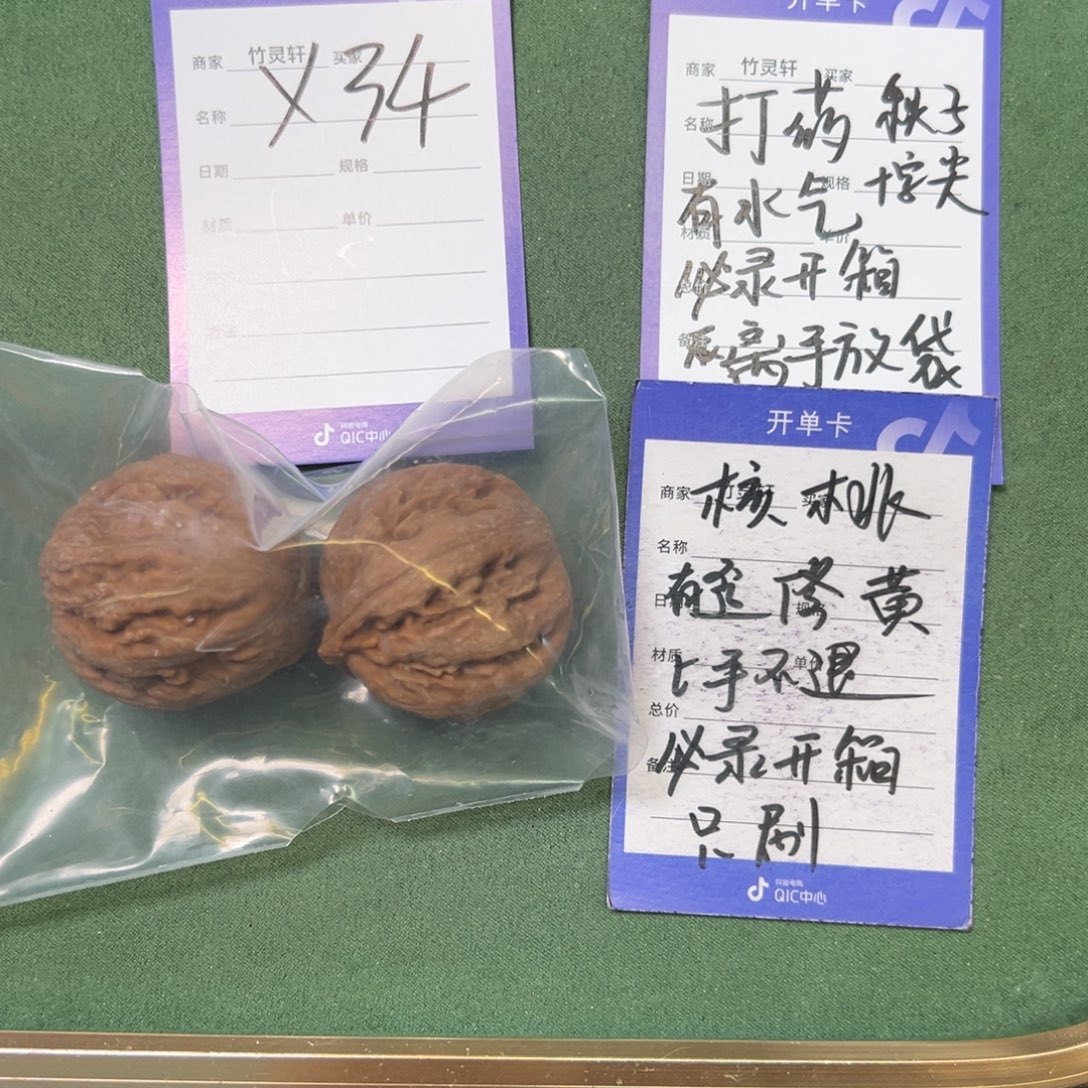 商家 竹灵轩 买家
X34
名称
日期 规格
材质 单价
抖音电商
QIC中心
开单卡
商家 竹灵轩 买家
名称 打药 秧子
日期 规格 十字尖
有水气
材质 单价
必录开箱
备注
离手放袋
开单卡
商家 竹灵轩 买家
核桃
名称
日期 规格
有定 黄
材质 单价
上手不退
总价
备注
必录开箱
只刷
抖音电商
QIC中心